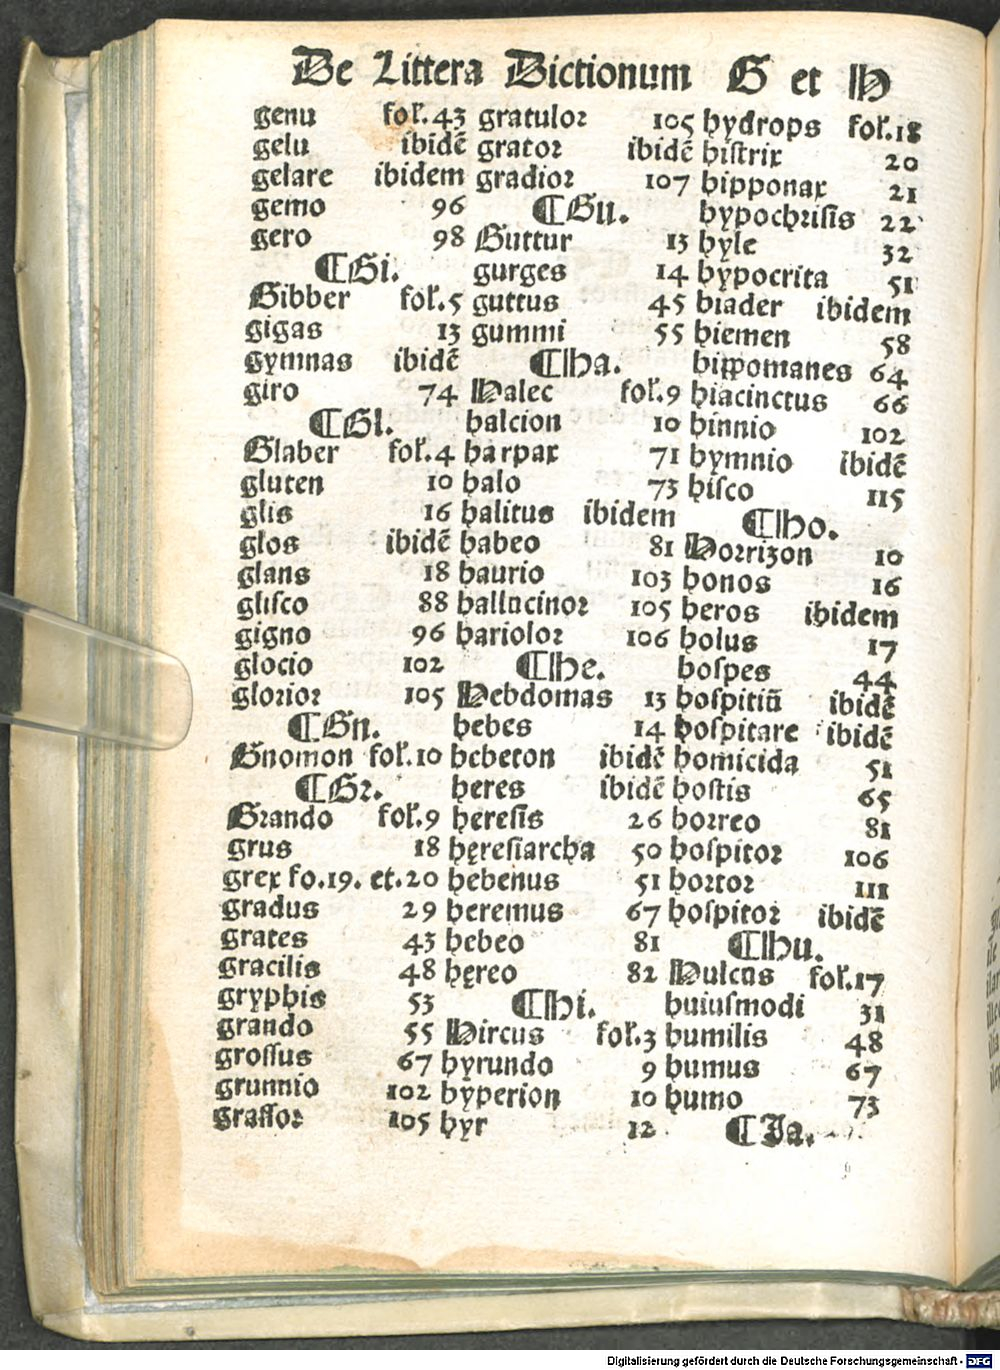 De Littera Dictionum G et H
genu fol. 43
gelu ibidē
gelare ibidem
gemo 96
gero 98
¶Gi.
Gibber fol. 5
gigas 13
gymnas ibidē
giro 74
¶Gl.
Glaber fol. 4
gluten 10
glis 16
glos ibidē
glans 18
glisco 88
gigno 96
glocio 102
glorior 105
¶Gn.
Gnomon fol. 10
¶Gr.
Grando fol. 9
grus 18
grex fo. 19. et. 20
gradus 29
grates 43
gracilis 48
gryphis 53
grando 55
grossus 67
grunnio 102
grassor 105
gratulor 105
grator ibidē
gradior 107
¶Gu.
Guttur 13
gurges 14
guttus 45
gummi 55
¶Ha.
Halec fol. 9
halcion 10
harpax 71
halo 73
halitus ibidem
habeo 81
haurio 103
hallucinor 105
hariolor 106
¶He.
Hebdomas 13
hebes 14
hebeton ibidē
heres ibidē
heresis 26
hęresiarcha 50
hebenus 51
heremus 67
hebeo 81
hęreo 82
¶Hi.
Hircus fol. 3
hyrundo 9
hyperion 10
hyr 12
hydrops fol. 18
histrix 20
hipponax 21
hypochrisis 22
hyle 32
hypocrita 51
hiader ibidem
hiemen 58
hippomanes 64
hiacinctus 66
hinnio 102
hymnio ibidē
hisco 115
¶Ho.
Horrizon 10
honos 16
heros ibidem
holus 17
hospes 44
hospitiū ibidē
hospitare ibidē
homicida 51
hostis 65
horreo 81
hospitor 106
hortor 111
hospitor ibidē
¶Hu.
Hulcus fol. 17
huiusmodi 31
humilis 48
humus 67
humo 73
¶Ia.
Digitalisierung gefördert durch die Deutsche Forschungsgemeinschaft - DFG